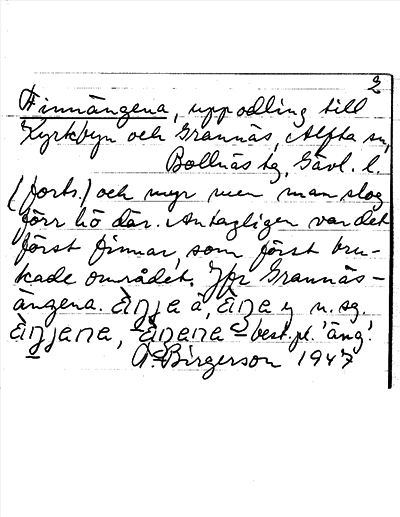 2
Finnängena, uppodling till
Kyrkbyn och Grannäs, Alfta sn,
Bollnäs tg, Gävl. l.
(forts.) och myr men man slog
förr hö där. Antagligen var det
först finnar, som först bru-
kade området. Jfr Grannäs-
ängena. n. sg.
best. pl. 'äng'.
Birgerson 1947